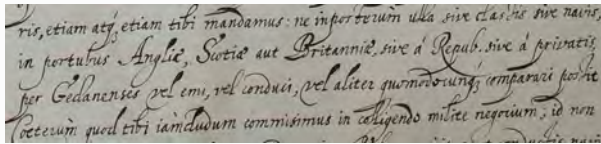 ris, etiam atq; etiam tibi mandamus: ne inposterum ulla sive classis sive navis,
in portubus Angliæ, Scotiæ aut Britanniæ, sive á Repub. sive á privatis,
per Gedanenses vel emi, vel conduci, vel aliter quomodocunq; comparari possit
Cœterùm quod tibi iamdudum commisimus in colligendo milite negotium; id non